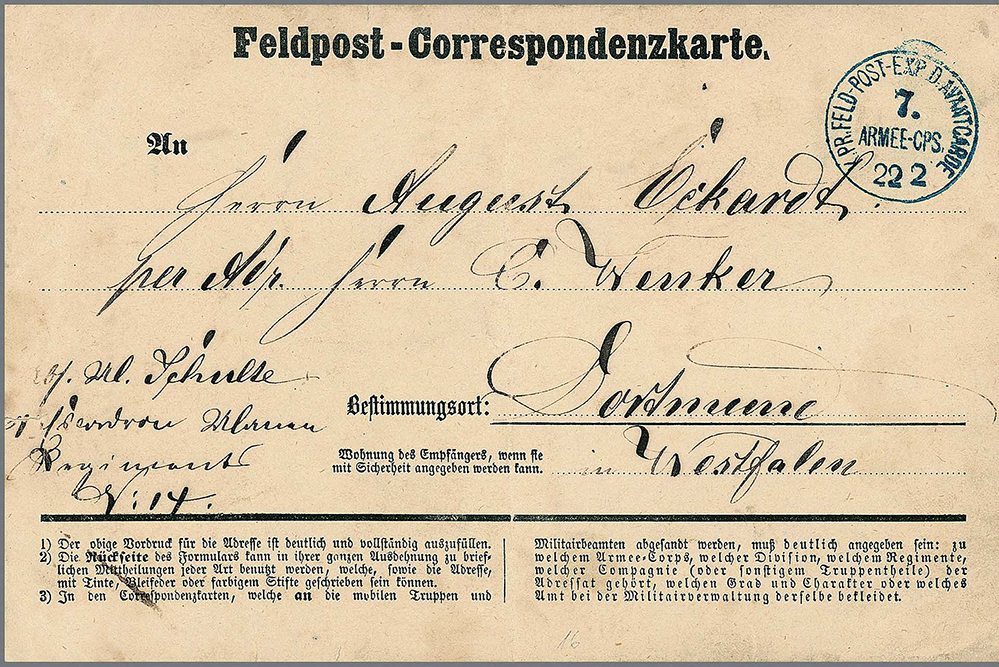 Feldpost-Correspondenzkarte.
K.PR.FELD-POST-EXP.D.AVANTGARDE
7.
ARMEE-CPS.
22 2
An
Herrn August Eckardt
per Adr. Herrn C. Wenker
Abs. Ul. Schulte
Escadron Ulanen
Regiments
No: 14.
Bestimmungsort: Dortmund
Wohnung des Empfängers, wenn sie
mit Sicherheit angegeben werden kann.
in Westfalen
1) Der obige Vordruck für die Adresse ist deutlich und vollständig auszufüllen.
2) Die Rückseite des Formulars kann in ihrer ganzen Ausdehnung zu brief-
lichen Mittheilungen jeder Art benutzt werden, welche, sowie die Adresse,
mit Tinte, Bleifeder oder farbigem Stifte geschrieben sein können.
3) In den Correspondenzkarten, welche an die mobilen Truppen und
Militairbeamten abgesandt werden, muß deutlich angegeben sein: zu
welchem Armee-Corps, welcher Division, welchem Regimente,
welcher Compagnie (oder sonstigem Truppentheile) der
Adressat gehört, welchen Grad und Charakter oder welches
Amt bei der Militairverwaltung derselbe bekleidet.